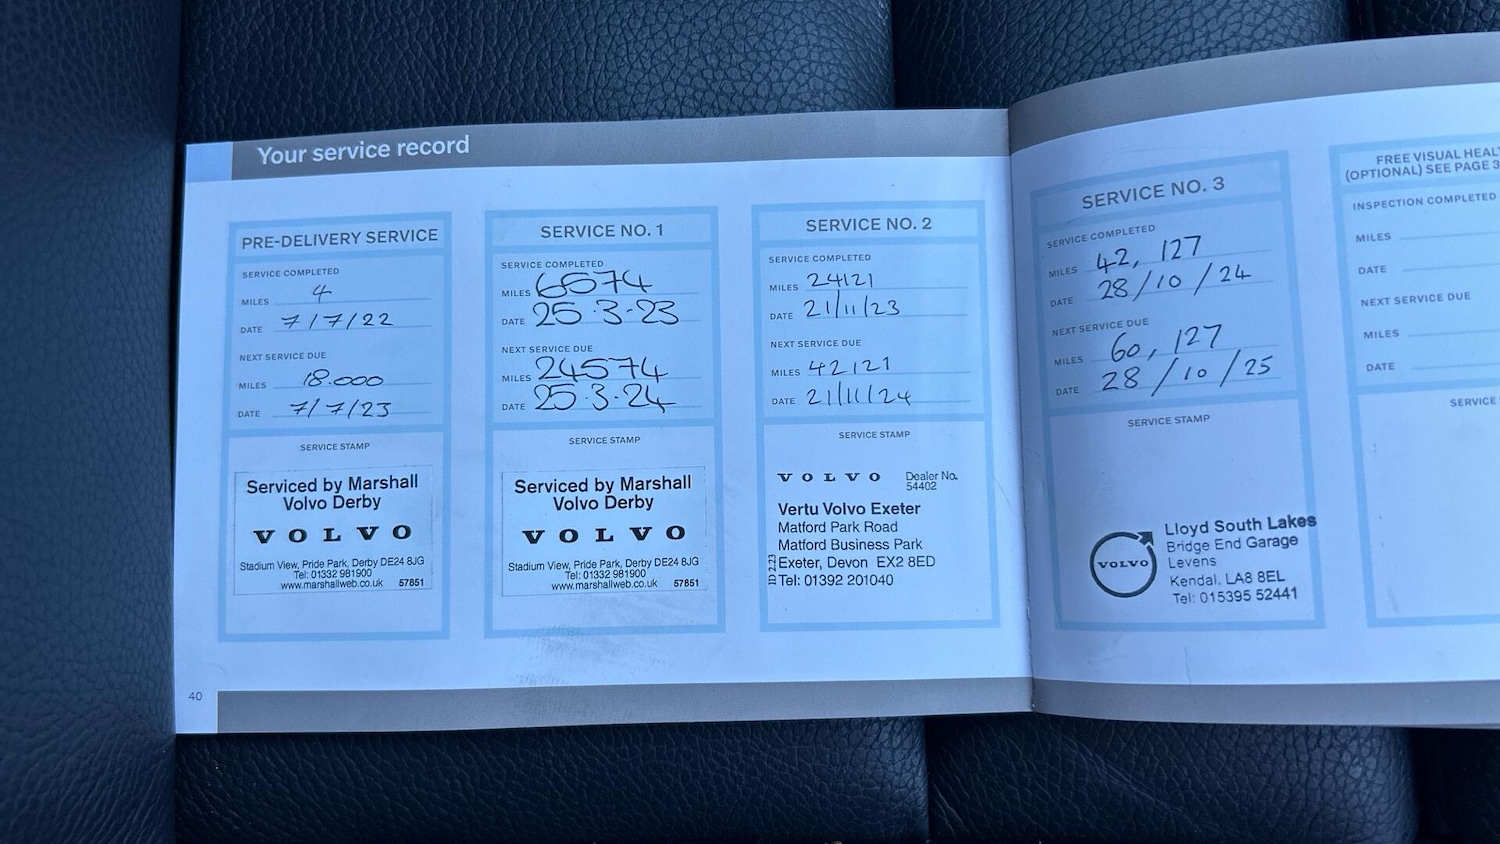 Your service record
PRE-DELIVERY SERVICE
SERVICE COMPLETED
MILES 4
DATE 7/7/22
NEXT SERVICE DUE
MILES 18.000
DATE 7/7/23
SERVICE STAMP
Serviced by Marshall
Volvo Derby
VOLVO
Stadium View, Pride Park, Derby DE24 8JG
Tel: 01332 981900
www.marshallweb.co.uk 57851
SERVICE NO. 1
SERVICE COMPLETED
MILES 6574
DATE 25.3-23
NEXT SERVICE DUE
MILES 24574
DATE 25.3.24
SERVICE STAMP
Serviced by Marshall
Volvo Derby
VOLVO
Stadium View, Pride Park, Derby DE24 8JG
Tel: 01332 981900
www.marshallweb.co.uk 57851
SERVICE NO. 2
SERVICE COMPLETED
MILES 24121
DATE 21/11/23
NEXT SERVICE DUE
MILES 42121
DATE 21/11/24
SERVICE STAMP
VOLVO Dealer No.
54402
Vertu Volvo Exeter
Matford Park Road
Matford Business Park
Exeter, Devon EX2 8ED
Tel: 01392 201040
40
SERVICE NO. 3
SERVICE COMPLETED
MILES 42, 127
DATE 28/10/24
NEXT SERVICE DUE
MILES 60, 127
DATE 28/10/25
SERVICE STAMP
VOLVO
Lloyd South Lakes
Bridge End Garage
Levens
Kendal, LA8 8EL
Tel: 015395 52441
FREE VISUAL HEAL
(OPTIONAL) SEE PAGE 3
INSPECTION COMPLETED
MILES
DATE
NEXT SERVICE DUE
MILES
DATE
SERVICE